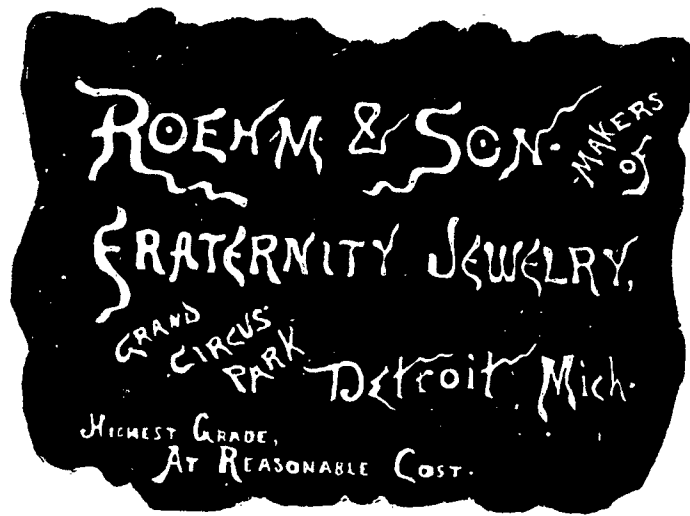 ROEHM & SON.
MAKERS
OF
FRATERNITY JEWELRY,
GRAND
CIRCUS
PARK
Detroit, Mich.
HIGHEST GRADE,
AT REASONABLE COST.